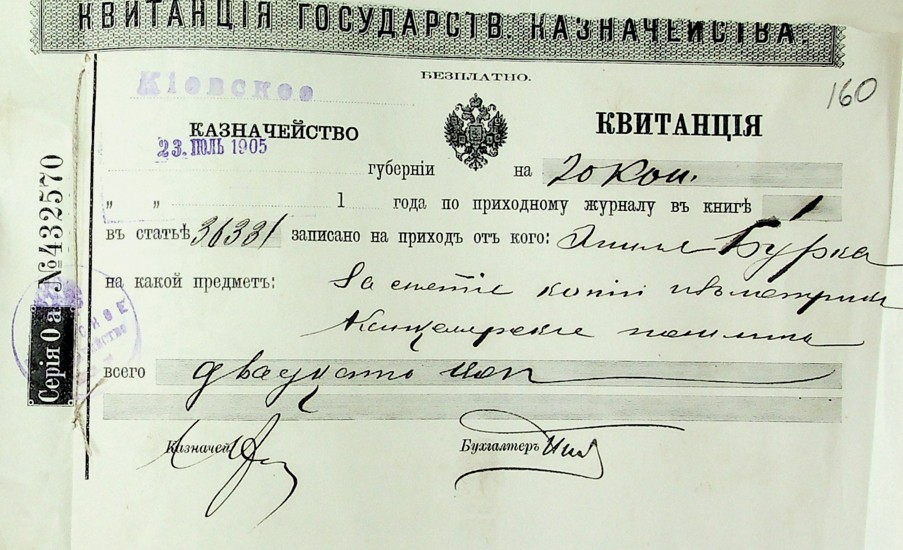 КВИТАНЦІЯ ГОСУДАРСТВ. КАЗНАЧЕЙСТВА.
БЕЗПЛАТНО.
Кіевское
160
КАЗНАЧЕЙСТВО
КВИТАНЦІЯ
23. ІЮЛЬ 1905
губерніи на 20 коп.
„ „ 1 года по приходному журналу въ книгѣ 1
въ статьѣ 36331 записано на приходъ отъ кого: Бурка
на какой предметъ: За снятіе копіи
всего двадцать коп
Казначей
Бухгалтеръ
Серія 0 а. № 432570